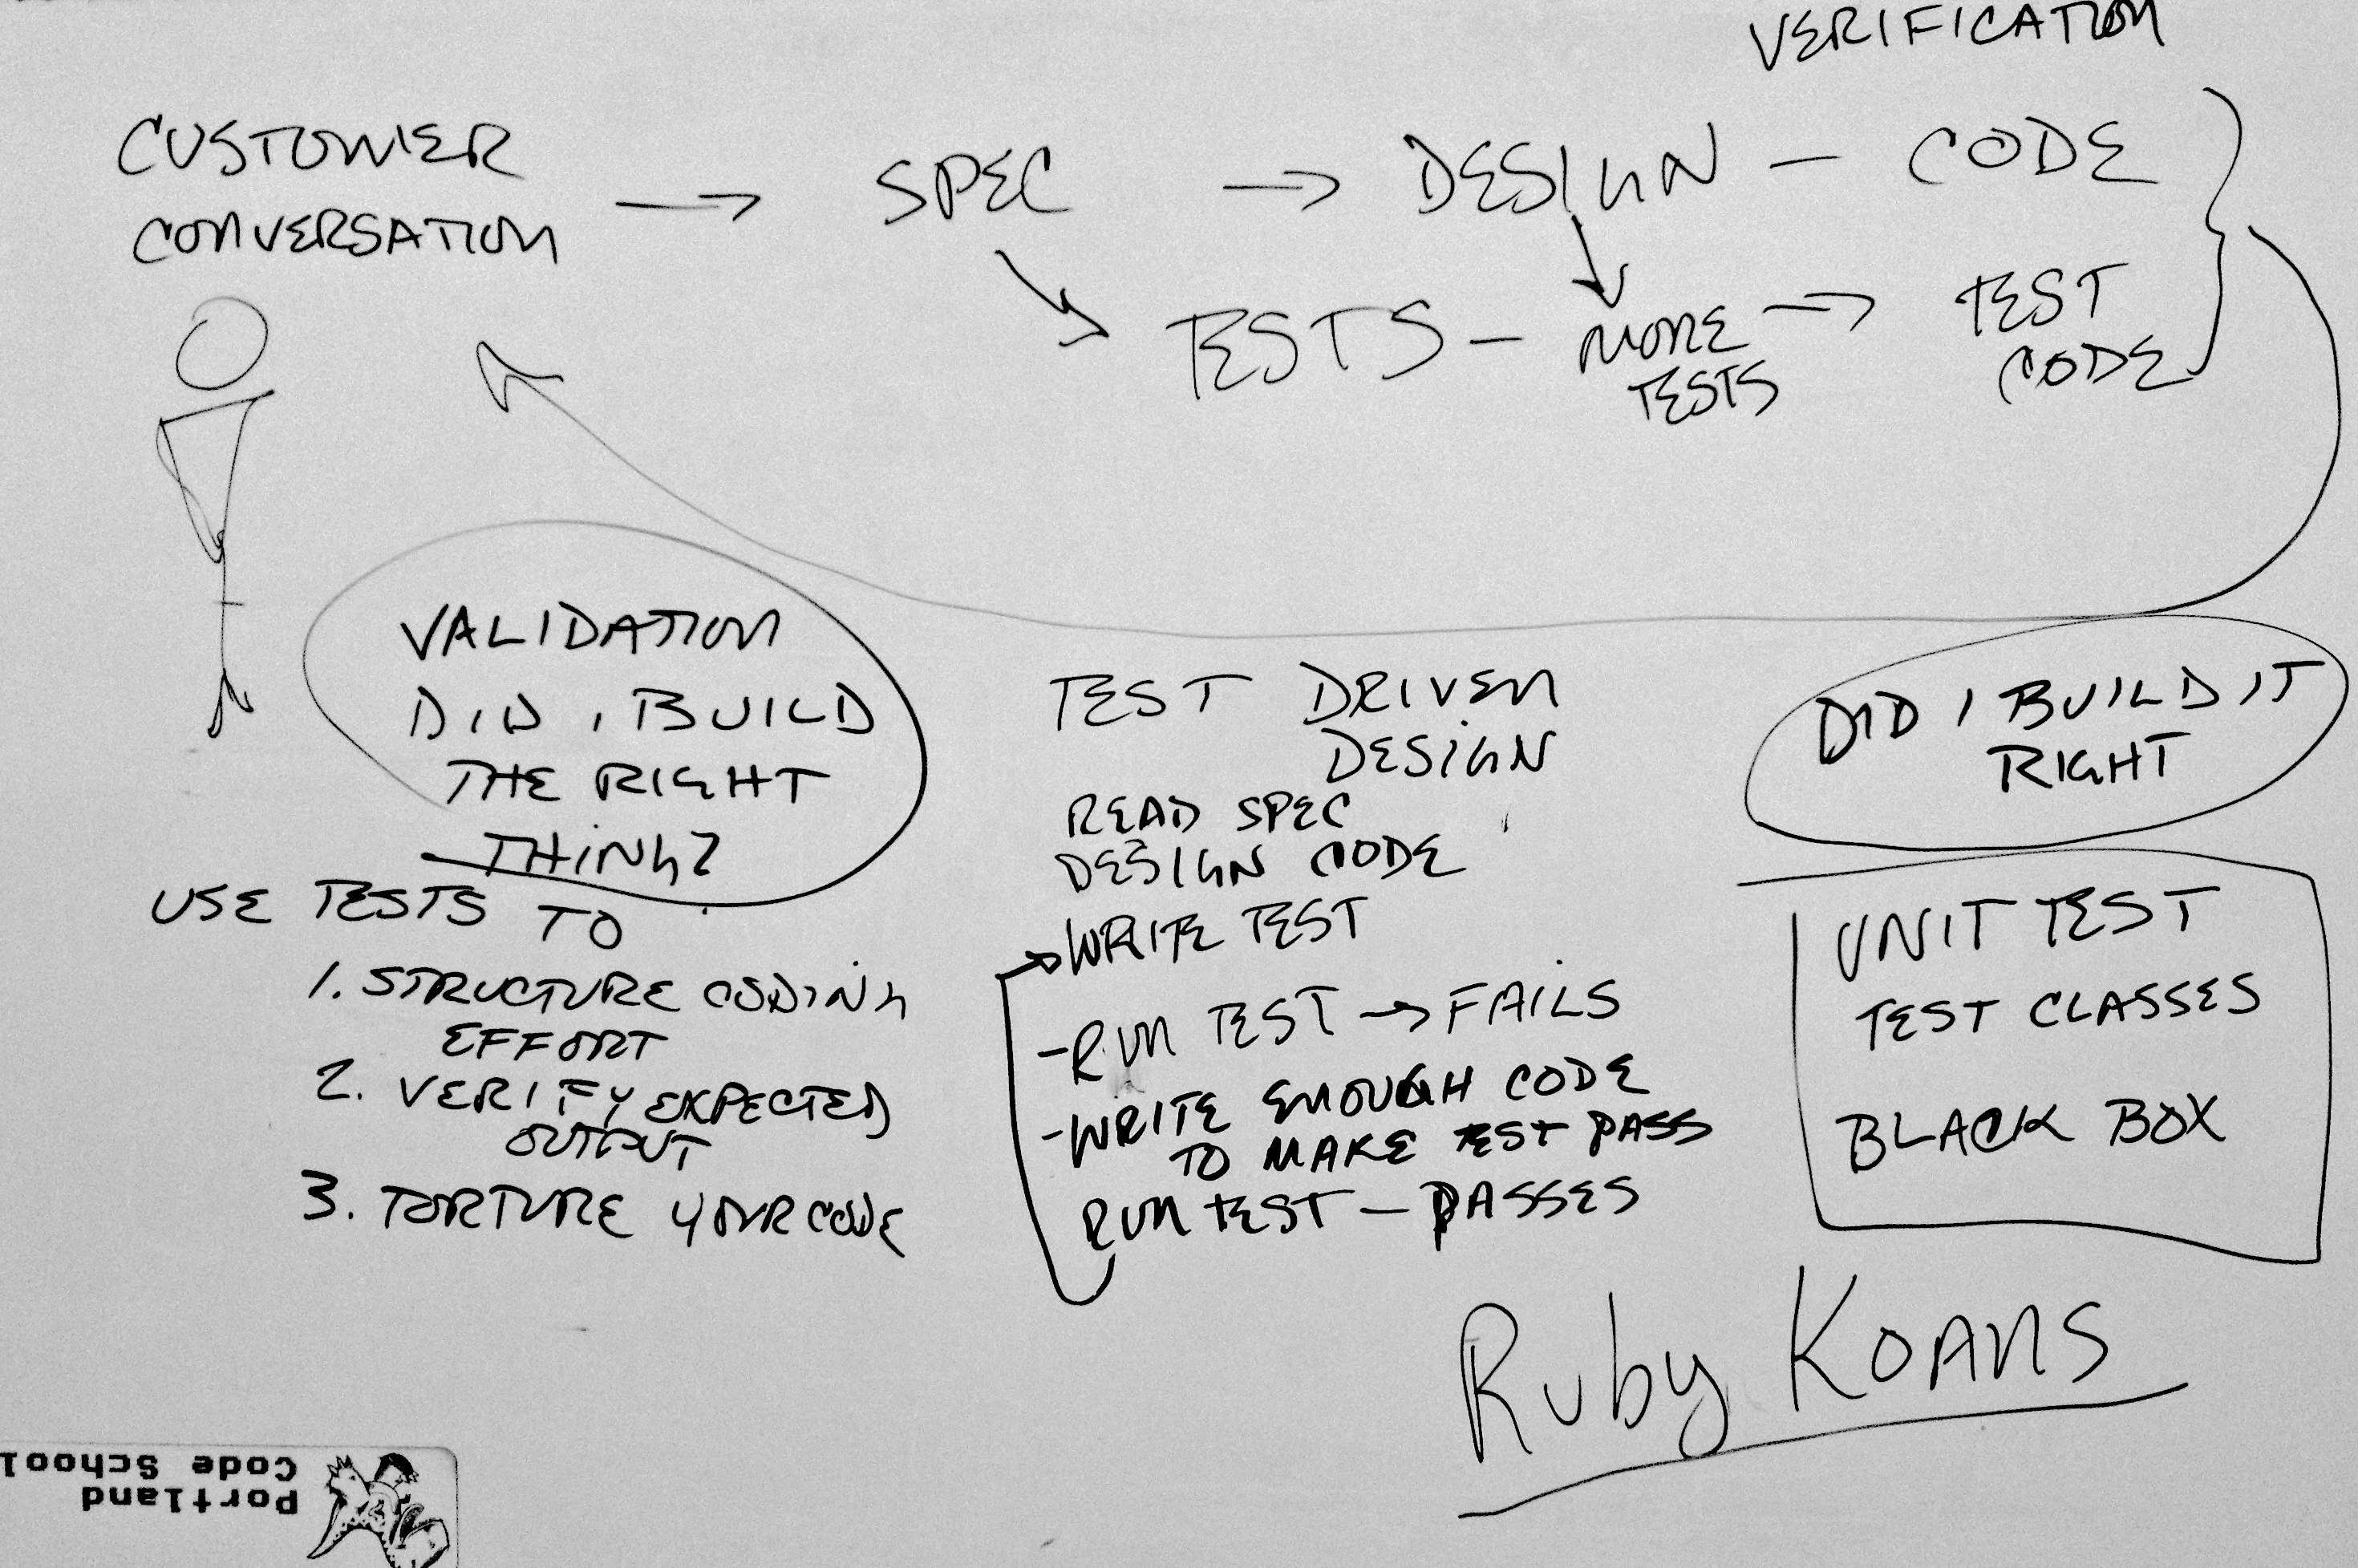 VERIFICATION
CUSTOMER
CONVERSATION → SPEC → DESIGN — CODE
TESTS — MORE TESTS → TEST CODE
VALIDATION
DID I BUILD
THE RIGHT
THING?
USE TESTS TO
1. STRUCTURE CODING
EFFORT
2. VERIFY EXPECTED
OUTPUT
3. TORTURE YOUR CODE
TEST DRIVEN
DESIGN
READ SPEC
DESIGN CODE
WRITE TEST
-RUN TEST → FAILS
-WRITE ENOUGH CODE
TO MAKE TEST PASS
RUN TEST — PASSES
DID I BUILD IT
RIGHT
UNIT TEST
TEST CLASSES
BLACK BOX
Ruby KOANS
Portland
Code School